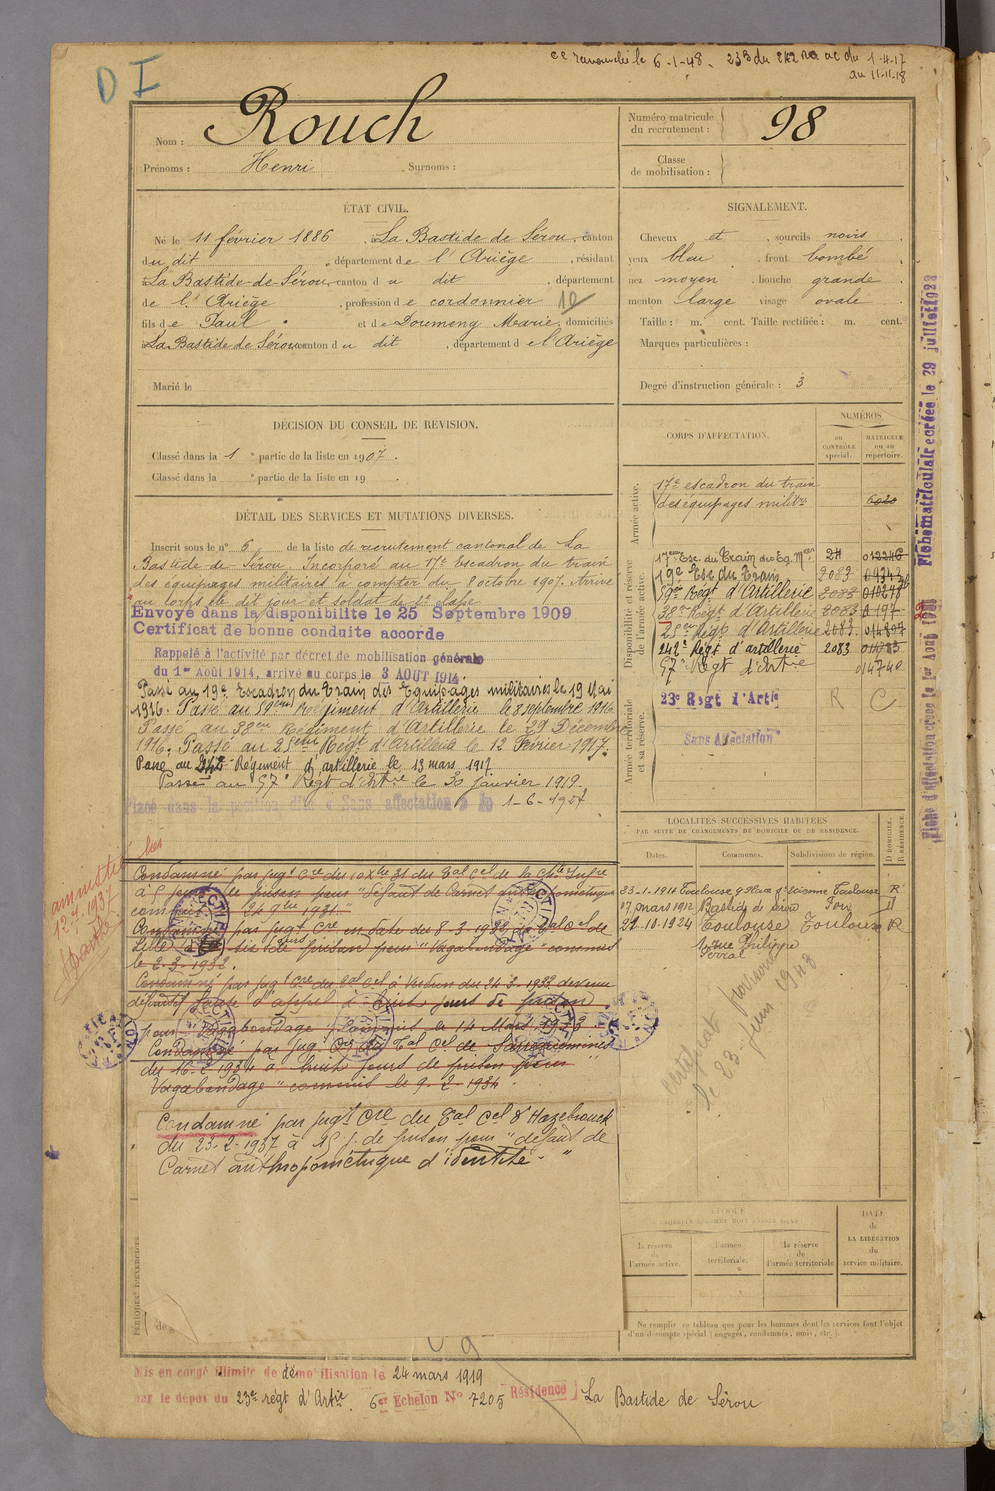 ce renouvelée le 6-1-48. 23B du 242 RA ac du 1-4-17
au 11-11-18
D I
Nom : Rouch
Prénoms : Henri Surnoms :
Numéro matricule du recrutement : 98
Classe de mobilisation :
ÉTAT CIVIL.
Né le 11 février 1886, à La Bastide de Sérou, canton
du dit, département de l'Ariège, résidant
à La Bastide-de-Sérou, canton du dit, département
de l'Ariège, profession de cordonnier 12
fils de Paul et de Doumeng Marie, domiciliés
à La Bastide de Sérou canton du dit, département de l'Ariège
Marié le
SIGNALEMENT.
Cheveux et, sourcils noirs
yeux bleu, front bombé
nez moyen, bouche grande
menton large visage ovale
Taille : m. cent. Taille rectifiée : m. cent.
Marques particulières :
Degré d'instruction générale : 3
DÉCISION DU CONSEIL DE REVISION.
Classé dans la 1e partie de la liste en 1907.
Classé dans la e partie de la liste en 19
DÉTAIL DES SERVICES ET MUTATIONS DIVERSES.
Inscrit sous le n° 6 de la liste de recrutement cantonal de La
Bastide de Sérou. Incorporé au 17e Escadron du train
des équipages militaires à compter du 8 octobre 1907. Arrivé
au corps le dit jour et soldat de 2e classe
Envoyé dans la disponibilité le 25 Septembre 1909
Certificat de bonne conduite accordé
Rappelé à l'activité par décret de mobilisation générale
du 1er Août 1914, arrivé au corps le 3 AOUT 1914
Passé au 19e Escadron du Train des Equipages militaires le 19 Mai
1916. Passé au 59ème Régiment d'Artillerie le 8 septembre 1916
Passé au 38ème Régiment d'Artillerie le 29 Décembre
1916. Passé au 25ème Régt d'Artillerie le 12 Février 1917.
Passé au 242e Régiment d'artillerie le 13 mars 1917
Passé au 57e Régt d'Artrie le 30 janvier 1919.
Placé dans la position dite « Sans affectation » le 1-6-1927
CORPS D'AFFECTATION.
NUMÉROS
au CONTRÔLE spécial.
MATRICULE ou au répertoire.
Armée active.
17e escadron du train
des équipages militres
Disponibilité et réserve de l'armée active.
17ème Esc. du Train des Eq. Mres
19e Esc du Train 2083
59e Régt d'Artillerie 2083
38e Régt d'Artillerie 2083 197
25ème Régt d'Artillerie 2083
242e Régt d'artillerie 2083
57e Régt d'Artrie 014740
Armée territoriale et sa réserve.
23e Regt d'Artie R C
Sans Affectation
Fiche matriculaire créée le 29 juillet 1922
Fiche d'affectation créée le 1er Août
LOCALITÉS SUCCESSIVES HABITÉES
PAR SUITE DE CHANGEMENTS DE DOMICILE OU DE RÉSIDENCE.
Dates. Communes. Subdivisions de région. D DOMICILE. R RÉSIDENCE.
23-1-1911 Toulouse 9 Place St Etienne Toulouse R
17 mars 1912 Bastide de Sérou Foix D
21.10.1924 Toulouse Toulouse R
1 rue Philippe
Férral
certificat
le 23 juin 1943
amnistié
12.7.1937
Condamné par jugt Cre du 10 Xbre 31 du Bal Cel de la Chte Infre
à 5 jours de prison pour "défaut de Carnet anthropométrique
commis le 24 9bre 1931"
Condamné par jugt Cre en date du 8-3-1932 du Bal Cel de
Lille à six jours prison pour "Vagabondage" commis
le 2-3-1932.
Condamné par jugt Cre du Bal Cel à Verdun du 24-3-1933 devenu
définitif faute d'appel à huit jours de prison
pour Vagabondage commis le 14 Mars 1933
Condamné par jugt Cre du Bal Cel de Sarreguemines
du 16-2-1934 à huit jours de prison pour
Vagabondage" commis le 9-2-1934.
Condamné par jugt Cre du Bal Cel d'Hazebrouck
du 23-2-1937 à 15 j. de prison pour "défaut de
Carnet anthropométrique d'identité."
PÉRIODES D'EXERCICES
la réserve de l'armée active.
l'armée territoriale.
la réserve de l'armée territoriale
DATE de LA LIBÉRATION du service militaire.
Ne remplir ce tableau que pour les hommes dont les services font l'objet
d'un décompte spécial (engagés, condamnés, omis, etc.).
Mis en congé illimité de démobilisation le 24 mars 1919
par le dépôt du 23e régt d'Artie. 6er Echelon N° 7205 Résidence } La Bastide de Sérou